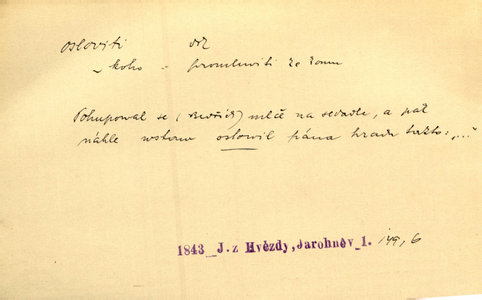 osloviti dok
„ koho - promluviti ke komu
Pohupowal se (Bedřich) mlče na sedadle, a pak
náhle wstana oslowil pána hradu takto: „..."
1843_J. z Hvězdy, Jarohněv_1. 149, 6